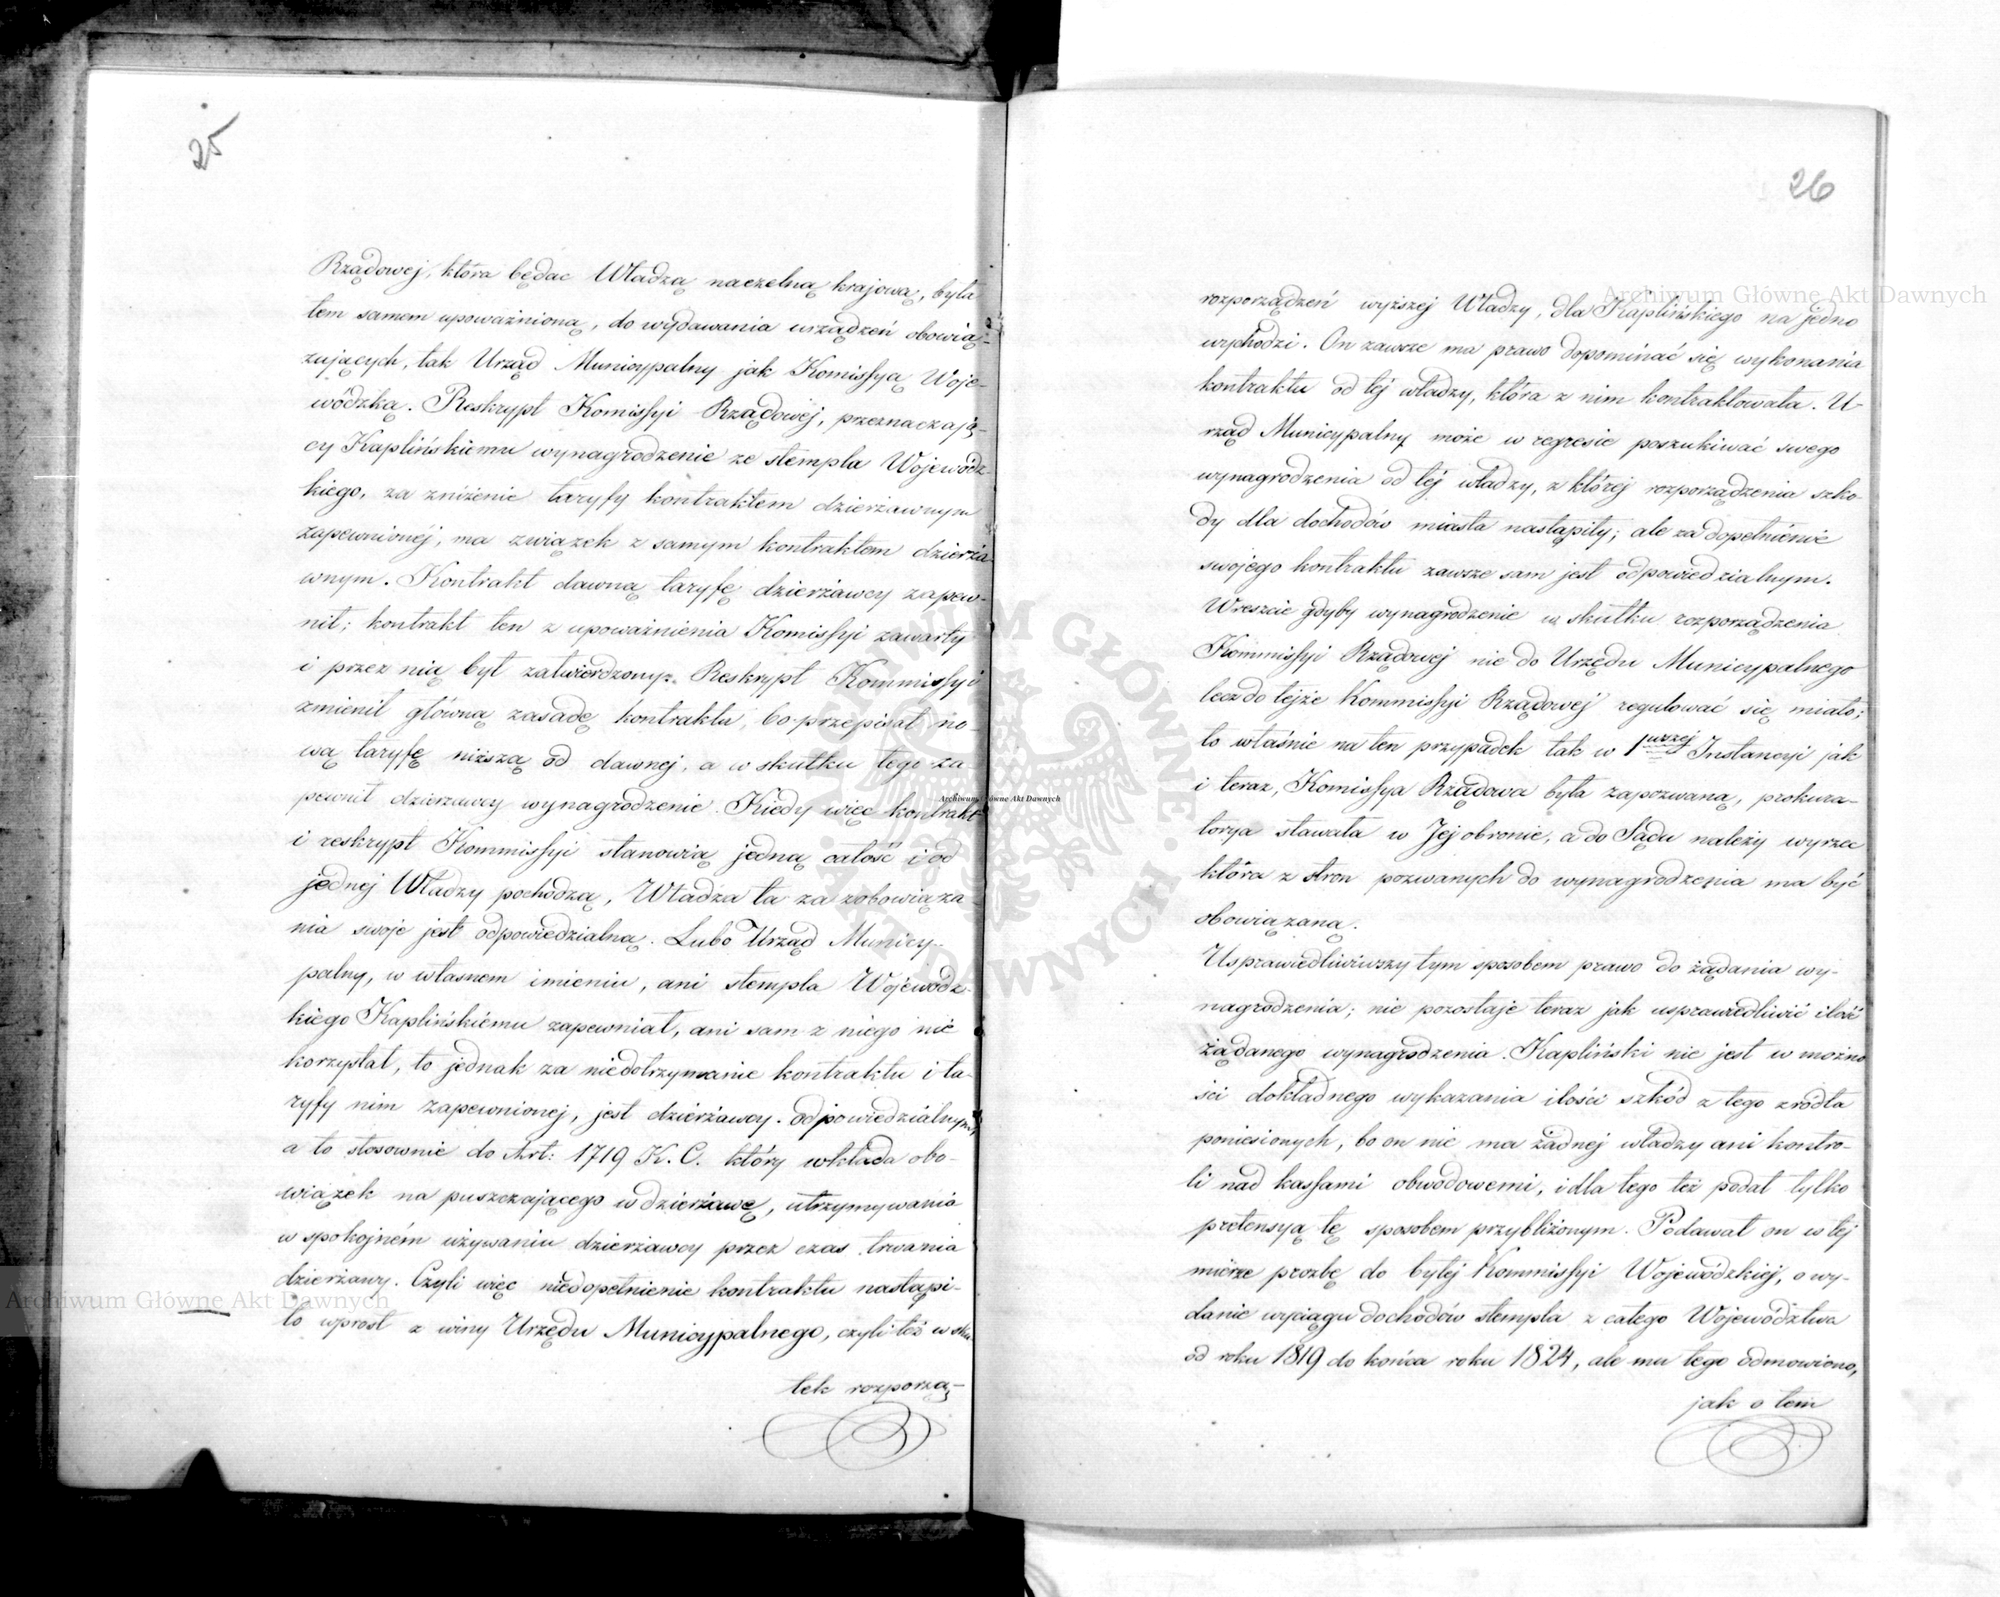 25
Rządowej, która będac Władzą naczelną krajową, była
tem samem upoważnioną, do wydawania urządzeń obowią-
zujących, tak Urząd Municypalny jak Komissyą Woje-
wódzką. Reskrypt Komissyi Rządowej, przeznaczają-
cy Kaplińskiemu wynagrodzenie ze stempla Wojewódz-
kiego, za zniżenie taryfy kontraktem dzierżawnym
zapewnionéj, ma związek z samym kontraktem dzierża-
wnym. Kontrakt dawną taryfę dzierżawcy zapew-
nił; kontrakt ten z upoważnienia Komissyi zawarty
i przez nią był zatwierdzony. Reskrypt Kommissyi
zmienił główną zasadę kontraktu, bo przepisał no-
wą taryfę niższą od dawnej, a w skutku tego za-
pewnił dzierzawcy wynagrodzenie. Kiedy więc kontrakt
i reskrypt Kommissyi stanowią jedną całość i od
jednej Władzy pochodzą, Władza ta za zobowiąza-
nia swoje jest odpowiedzialną. Lubo Urząd Municy-
palny, w własnem imieniu, ani stempla Wojewódz-
kiego Kaplińskiému zapewniał, ani sam z niego nie
korzystał, to jednak za niedotrzymanie kontraktu i ta-
ryfy nim zapewnionej, jest dzierżawcy odpowiedzialnym,
a to stosownie do Art: 1719 K. C. który wkłada obo-
wiązek na puszczającego w dzierżawę, utrzymywania
w spokojném używaniu dzierżawcy przez czas trwania
dzierżawy. Czyli więc niedopełnienie kontraktu nastąpi-
ło wprost z winy Urzędu Municypalnego, czyli też w sku-
tek rozporzą-
26
rozporządzeń wyższej Władzy, dla Kaplińskiego na jedno
wychodzi. On zawsze ma prawo dopominać się wykonania
kontraktu od tej władzy, która z nim kontraktowała. U-
rząd Municypalny może w regresie poszukiwać swego
wynagrodzenia od tej władzy, z której rozporządzenia szko-
dy dla dochodów miasta nastąpiły; ale za dopełniénie
swojego kontraktu zawsze sam jest odpowiedzialnym.
Wreszcie gdyby wynagrodzenie w skutku rozporządzenia
Kommissyi Rządowej nie do Urzędu Municypalnego
lecz do tejże Kommissyi Rządowej regulować się miało;
to właśnie na ten przypadek tak w 1wszej Instancyi jak
i teraz, Komissya Rządowa była zapozwaną, prokura-
torya stawała w Jej obronie, a do Sądu należy wyrzec
która z stron pozwanych do wynagrodzenia ma być
obowiązaną.
Usprawiedliwiwszy tym sposobem prawo do żądania wy-
nagrodzenia; nie pozostaje teraz jak usprawiedliwić ilość
żądanego wynagrodzenia. Kapliński nie jest w możno
ści dokładnego wykazania ilości szkód z tego zródła
poniesionych, bo on nie ma żadnej władzy ani kontro-
li nad kassami obwodowemi, i dla tego też podał tylko
pretensyą tę sposobem przybliżonym. Podawał on w tej
mierze prozbę do byłej Kommissyi Wojewódzkiéj, o wy-
danie wyciągu dochodów stempla z całego Województwa
od roku 1819 do końca roku 1824, ale mu tego odmowiono,
jak o tem
Archiwum Główne Akt Dawnych
Archiwum Główne Akt Dawnych
Archiwum Główne Akt Dawnych
ARCHIWUM GŁÓWNE AKT DAWNYCH